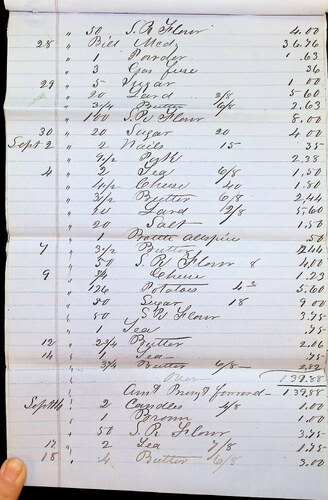 " 50 S.R Flour 4.00
28 " Bill Medz 36.76
" 1 Powder .63
" 3 Gas fuse 36
29 " 5 1.00
" 20 Lard 2/8 5.60
" 3 3/4 Butter 6/8 2.63
" 100 S.R Flour 8.00
30 " 20 Sugar 20 4.00
Sept 2 " 2 Nails 15 35
" 9 1/2 Pork 2.38
4 " 2 Tea 6/8 1.50
" 4 1/2 Cheese 40 1.80
" 3 1/2 Butter 6/8 2.44
" Lard 2/8 5.60
" 20 Salt 1.50
" 1 Bottle Allspice 50
7 " 3 1/2 Butter 2.44
" 50 S.R Flour 8 4.00
9 " Cheese 1.25
" 126 Potatoes 5.60
" 50 Sugar 18 9.00
" 50 S.R Flour 3.75
" 1 Tea .75
12 " 2 3/4 Butter 2.06
14 " 1 Tea .75
" 3 3/4 Butter 6/8
Over 139.88
Amt Brought forward 139.88
Sept 14 " 2 Candles 4/8 1.00
" 1 Broom 1.00
" 50 S.R Flour 3.75
17 " 2 Tea 7/8 1.75
18 " 4 Butter 6/8 3.00